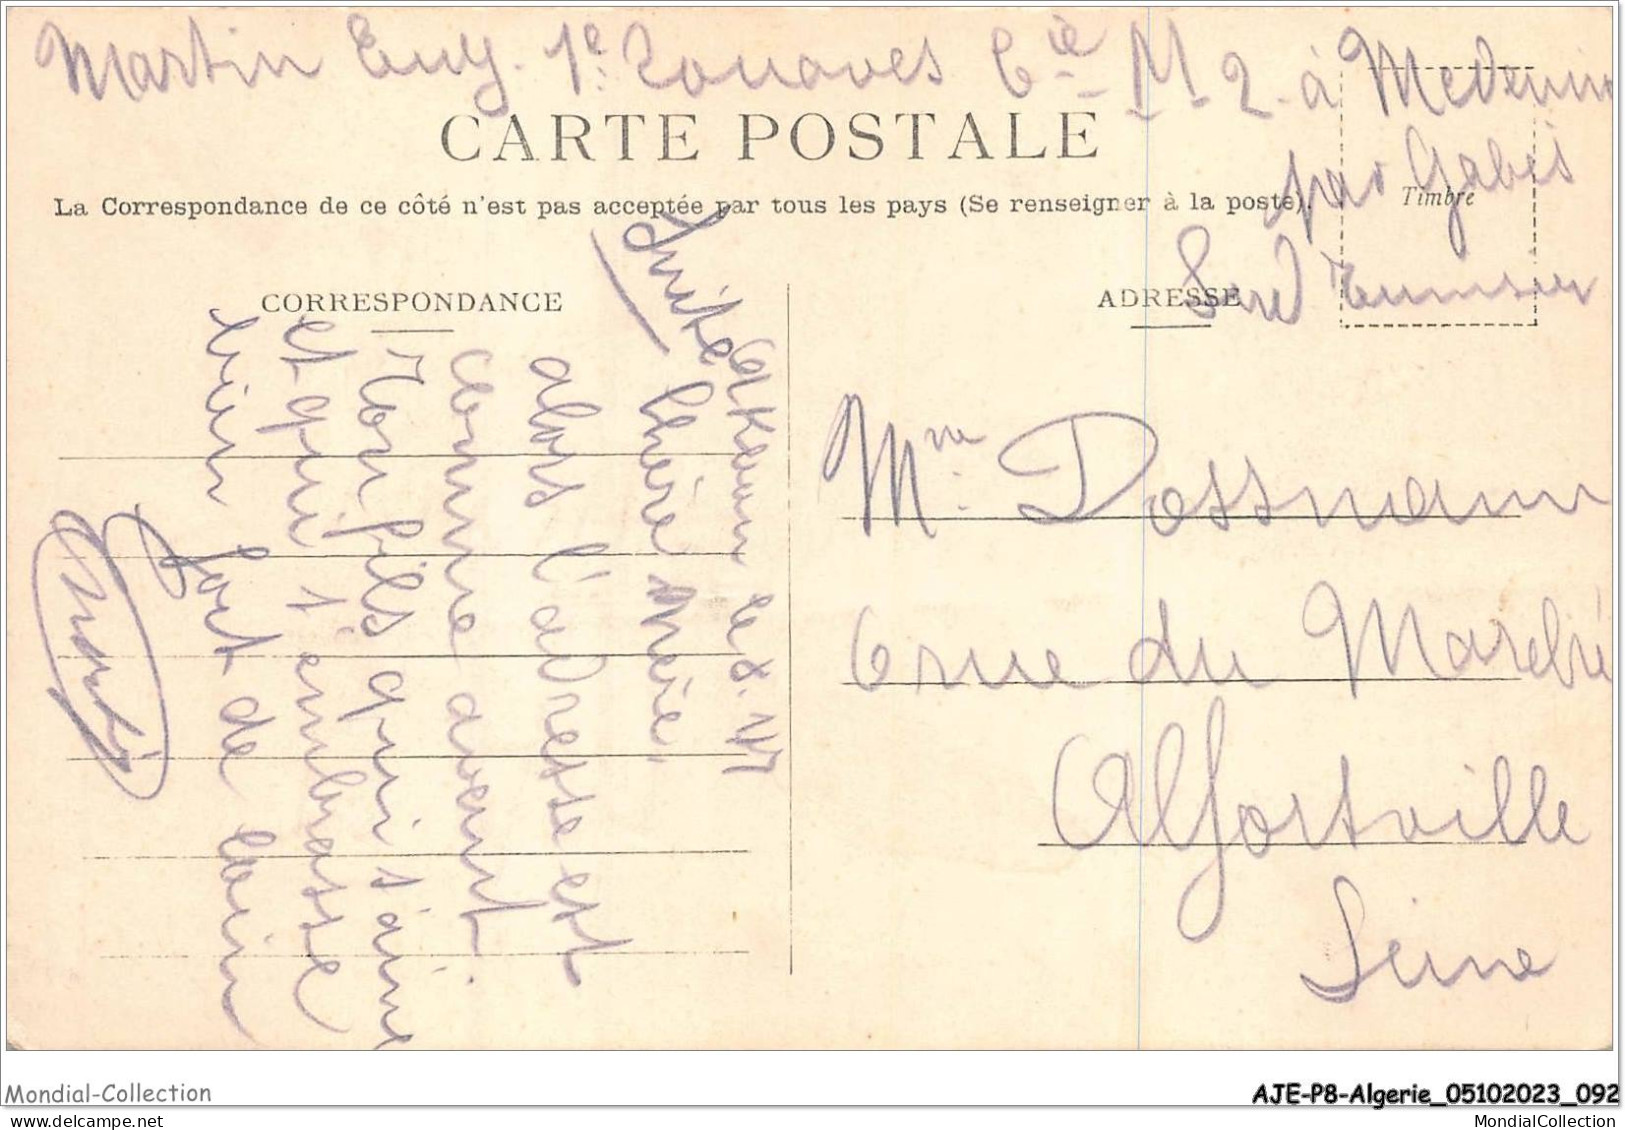 Martin Eug. 1e. Zouaves Cie M-2. à Medenine
par Gabès
Sud Tunisien
CARTE POSTALE
La Correspondance de ce côté n'est pas acceptée par tous les pays (Se renseigner à la poste).
Timbre
CORRESPONDANCE
ADRESSE
Suite
le 8.
Chère Mère,
alors l'adresse est
comme avant.
Ton fils qui t'aime
et qui t'embrasse
bien fort de loin
Mme. Dossmann
6 rue du Marché
Alfortville
Seine
Mondial-Collection
AJE-P8-Algerie_05102023_092
MondialCollection